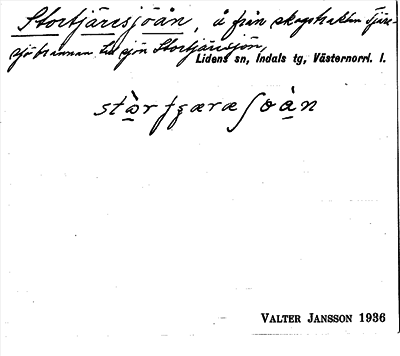 Stortjäresjöån, å från skogstrakten Tjäre-
sjöbrännan till sjön Stortjäresjön,
Lidens sn, Indals tg, Västernorrl. l.
VALTER JANSSON 1936